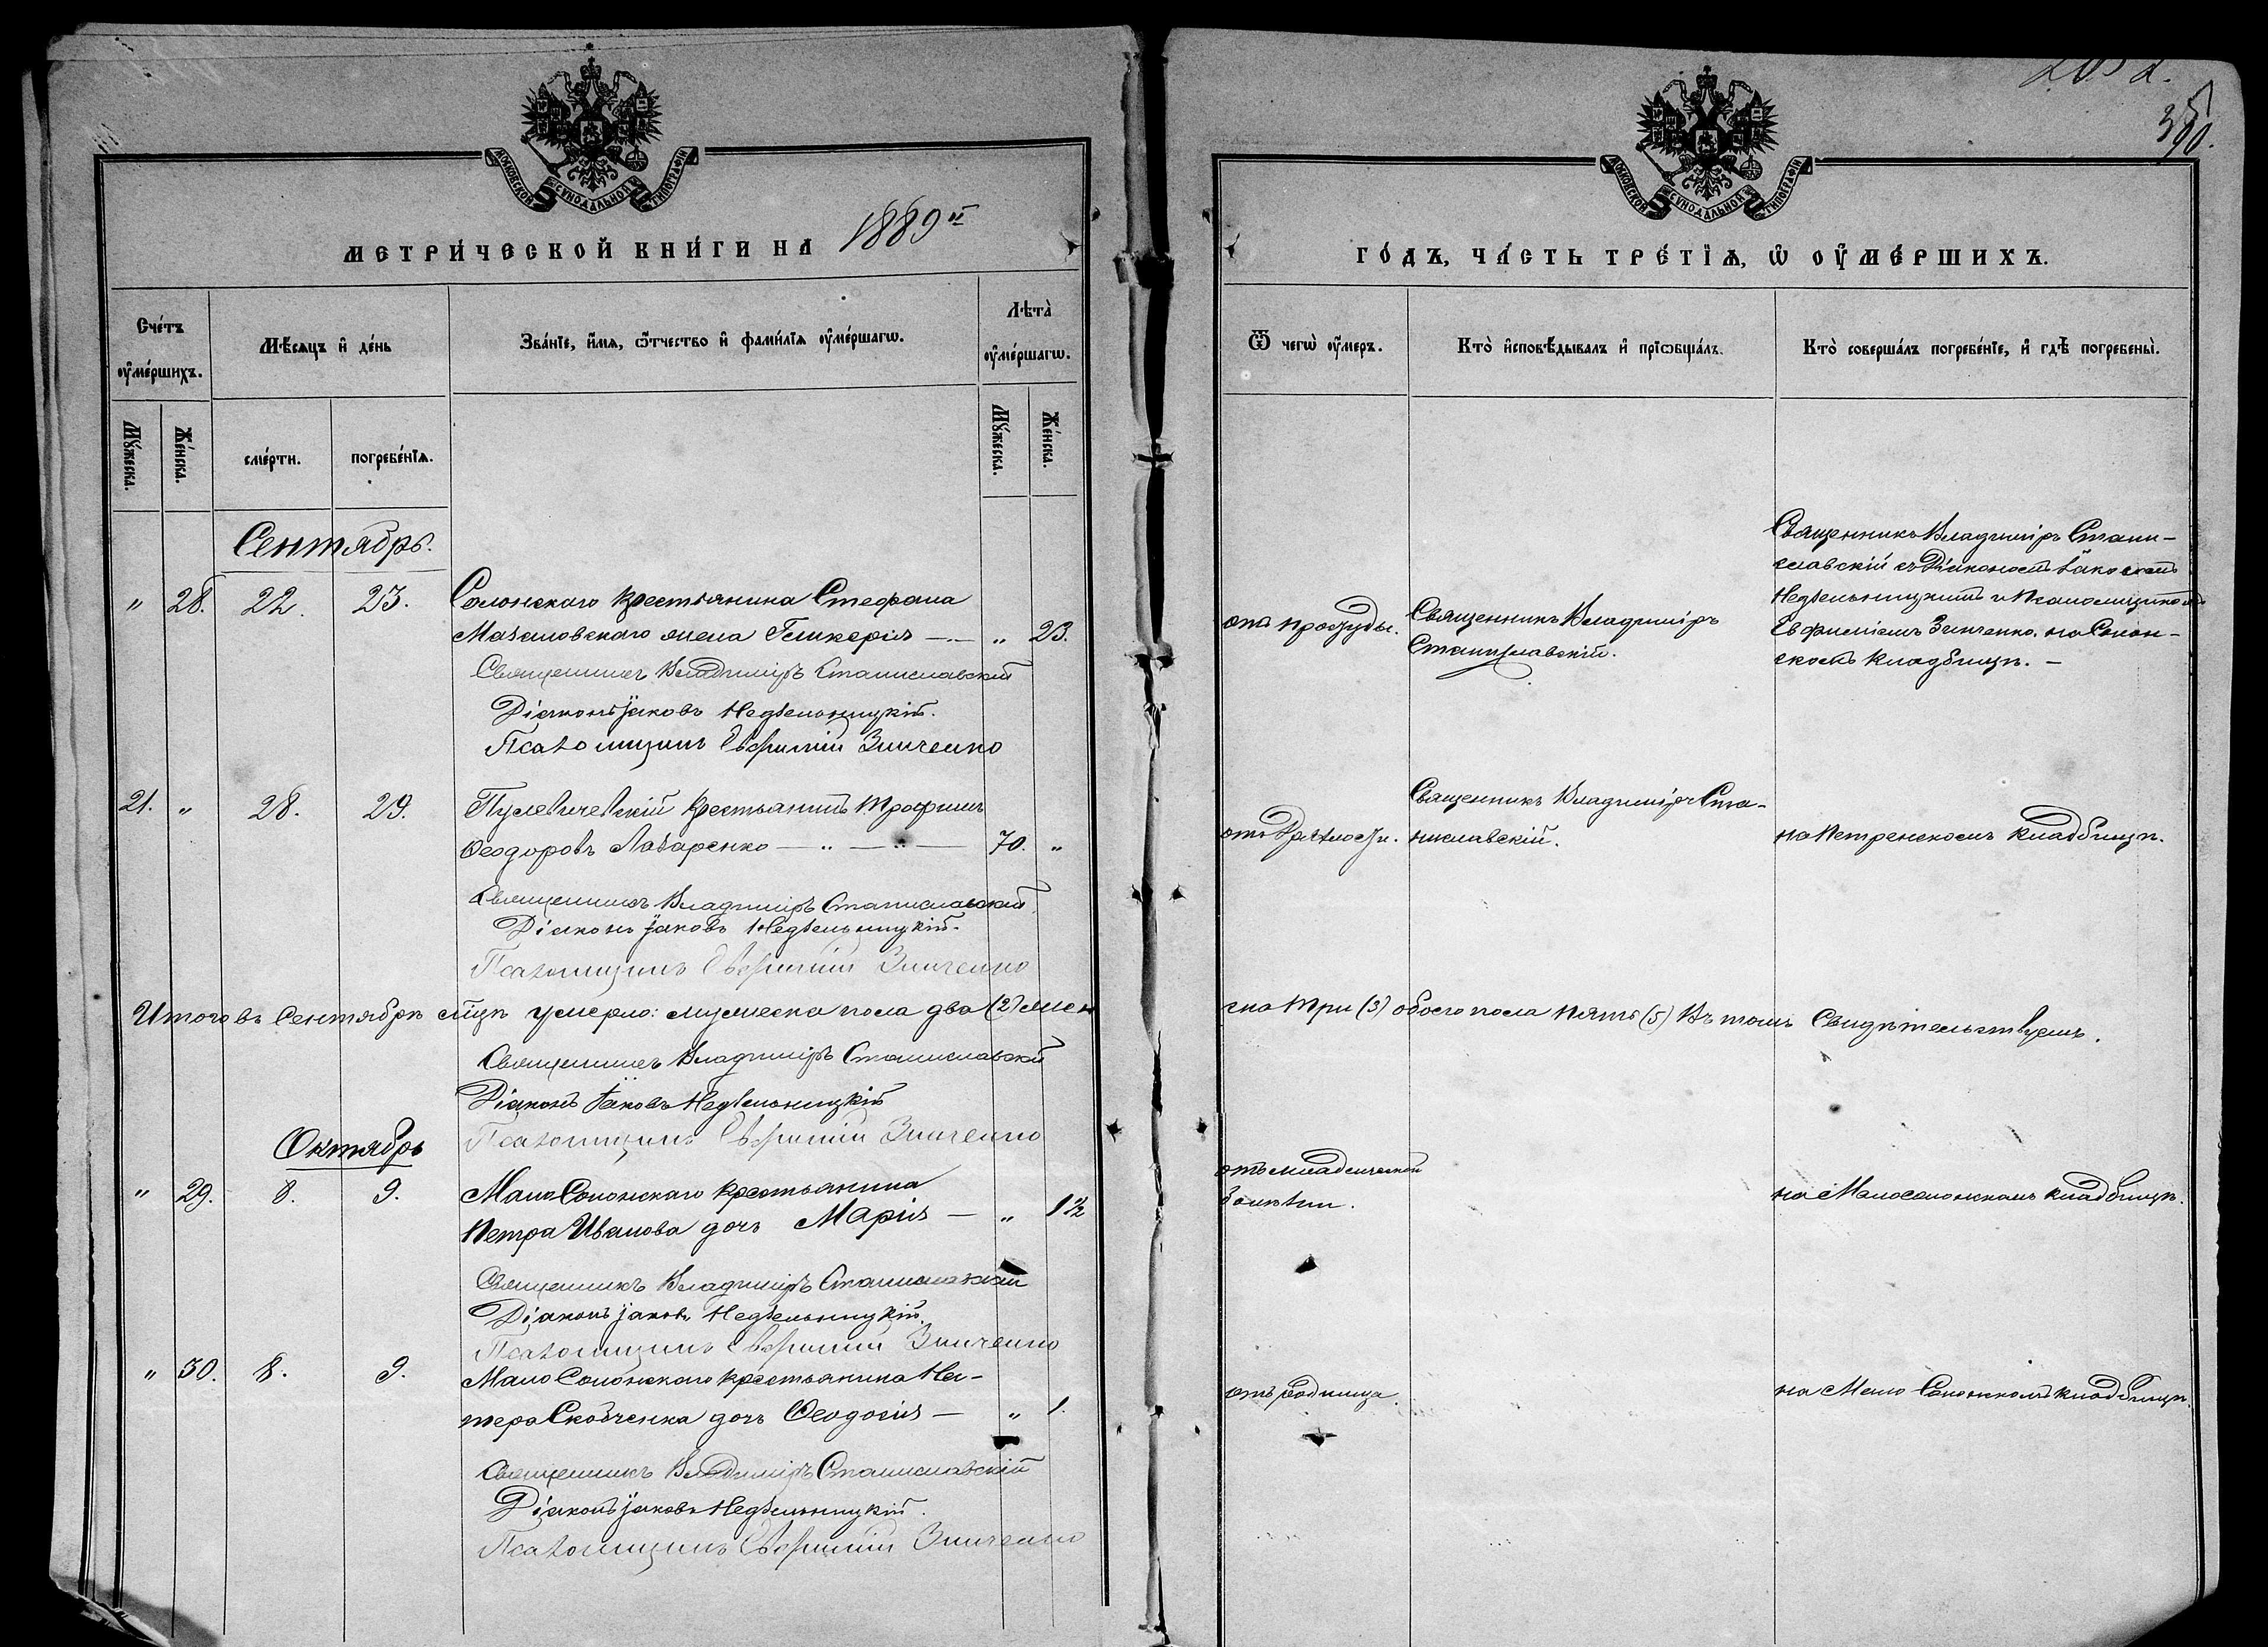 МОСКОВСКОЙ СѴНОДАЛЬНОЙ ТИПОГРАФІИ
МЕТРИ́ЧЕСКОЙ КНИ́ГИ НА 1889й
Сче́тъ ᲂу҆ме́ршихъ.
Мѣ́сяцъ и҆ де́нь
Зва́нїе, и҆́мѧ, ѻ҆́тчество и҆ фами́лїѧ ᲂу҆ме́ршагѡ.
Лѣта̀ ᲂу҆ме́ршагѡ.
Мꙋ́жеска.
Же́нска.
сме́рти.
погребе́нїѧ.
Мꙋ́жеска.
Же́нска.
Сентябрь.
" 28. 22. 23. Солонскаго крестьянина Стефана
Мачаловскаго жена Гликерія — " 23.
Священникъ Владиміръ Станиславскій
Діаконъ Іаковъ Недѣльницкій.
Псаломщикъ Евфимій Зинченко
21. " 28. 29. крестьянинъ Трофимъ
Ѳеодоровъ Лазаренко — " — " — 70. "
Священникъ Владиміръ Станиславскій
Діаконъ Іаковъ Недѣльницкій.
Псаломщикъ Евфимій Зинченко
Итого въ Сентябрѣ мцѣ умерло: мужеска пола два (2) жен
Священникъ Владиміръ Станиславскій
Діаконъ Іаковъ Недѣльницкій
Псаломщикъ Евфимій Зинченко
Октябрь
" 29. 8. 9. Мало Солонскаго крестьянина
Петра Иванова дочь Марія — " 1½
Священникъ Владиміръ Станиславскій
Діаконъ Іаковъ Недѣльницкій.
Псаломщикъ Евфимій Зинченко
" 30. 8. 9. Мало Солонскаго крестьянина Не-
стера Скобченка дочь Ѳеодосія — " 1.
Священникъ Владиміръ Станиславскій
Діаконъ Іаковъ Недѣльницкій.
Псаломщикъ Евфимій Зинченко
МОСКОВСКОЙ СѴНОДАЛЬНОЙ ТИПОГРАФІИ
ГО́ДЪ, ЧА́СТЬ ТРЕ́ТЇѦ, Ѡ҆ ОУ҆МЕ́РШИХЪ.
Ѿ чегѡ̀ ᲂу҆́меръ.
Кто̀ и҆сповѣ́дывалъ и҆ прїѡбща́лъ.
Кто̀ соверша́лъ погребе́нїе, и҆ гдѣ̀ погребены̀.
отъ простуды.
Священникъ Владиміръ
Станиславскій.
Священникъ Владиміръ Стани-
славскій съ Діакономъ Іаковомъ
Недѣльницкимъ и Псаломщикомъ
Евфиміемъ Зинченко. на Солон-
скомъ кладбищѣ. —
отъ дряхлости.
Священникъ Владиміръ Ста-
ниславскій.
на Петренскомъ кладбищѣ.
ска три (3) обоего пола пять (5) Въ томъ Свидѣтельствуемъ.
отъ младенческой
болѣзни.
на Малосолонскомъ кладбищѣ.
отъ родимца.
на Мало Солонскомъ кладбищѣ.